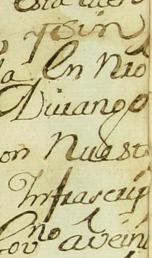 y sin
la En nro
Durango
on Nuest
Infrascrip
Govno â vein